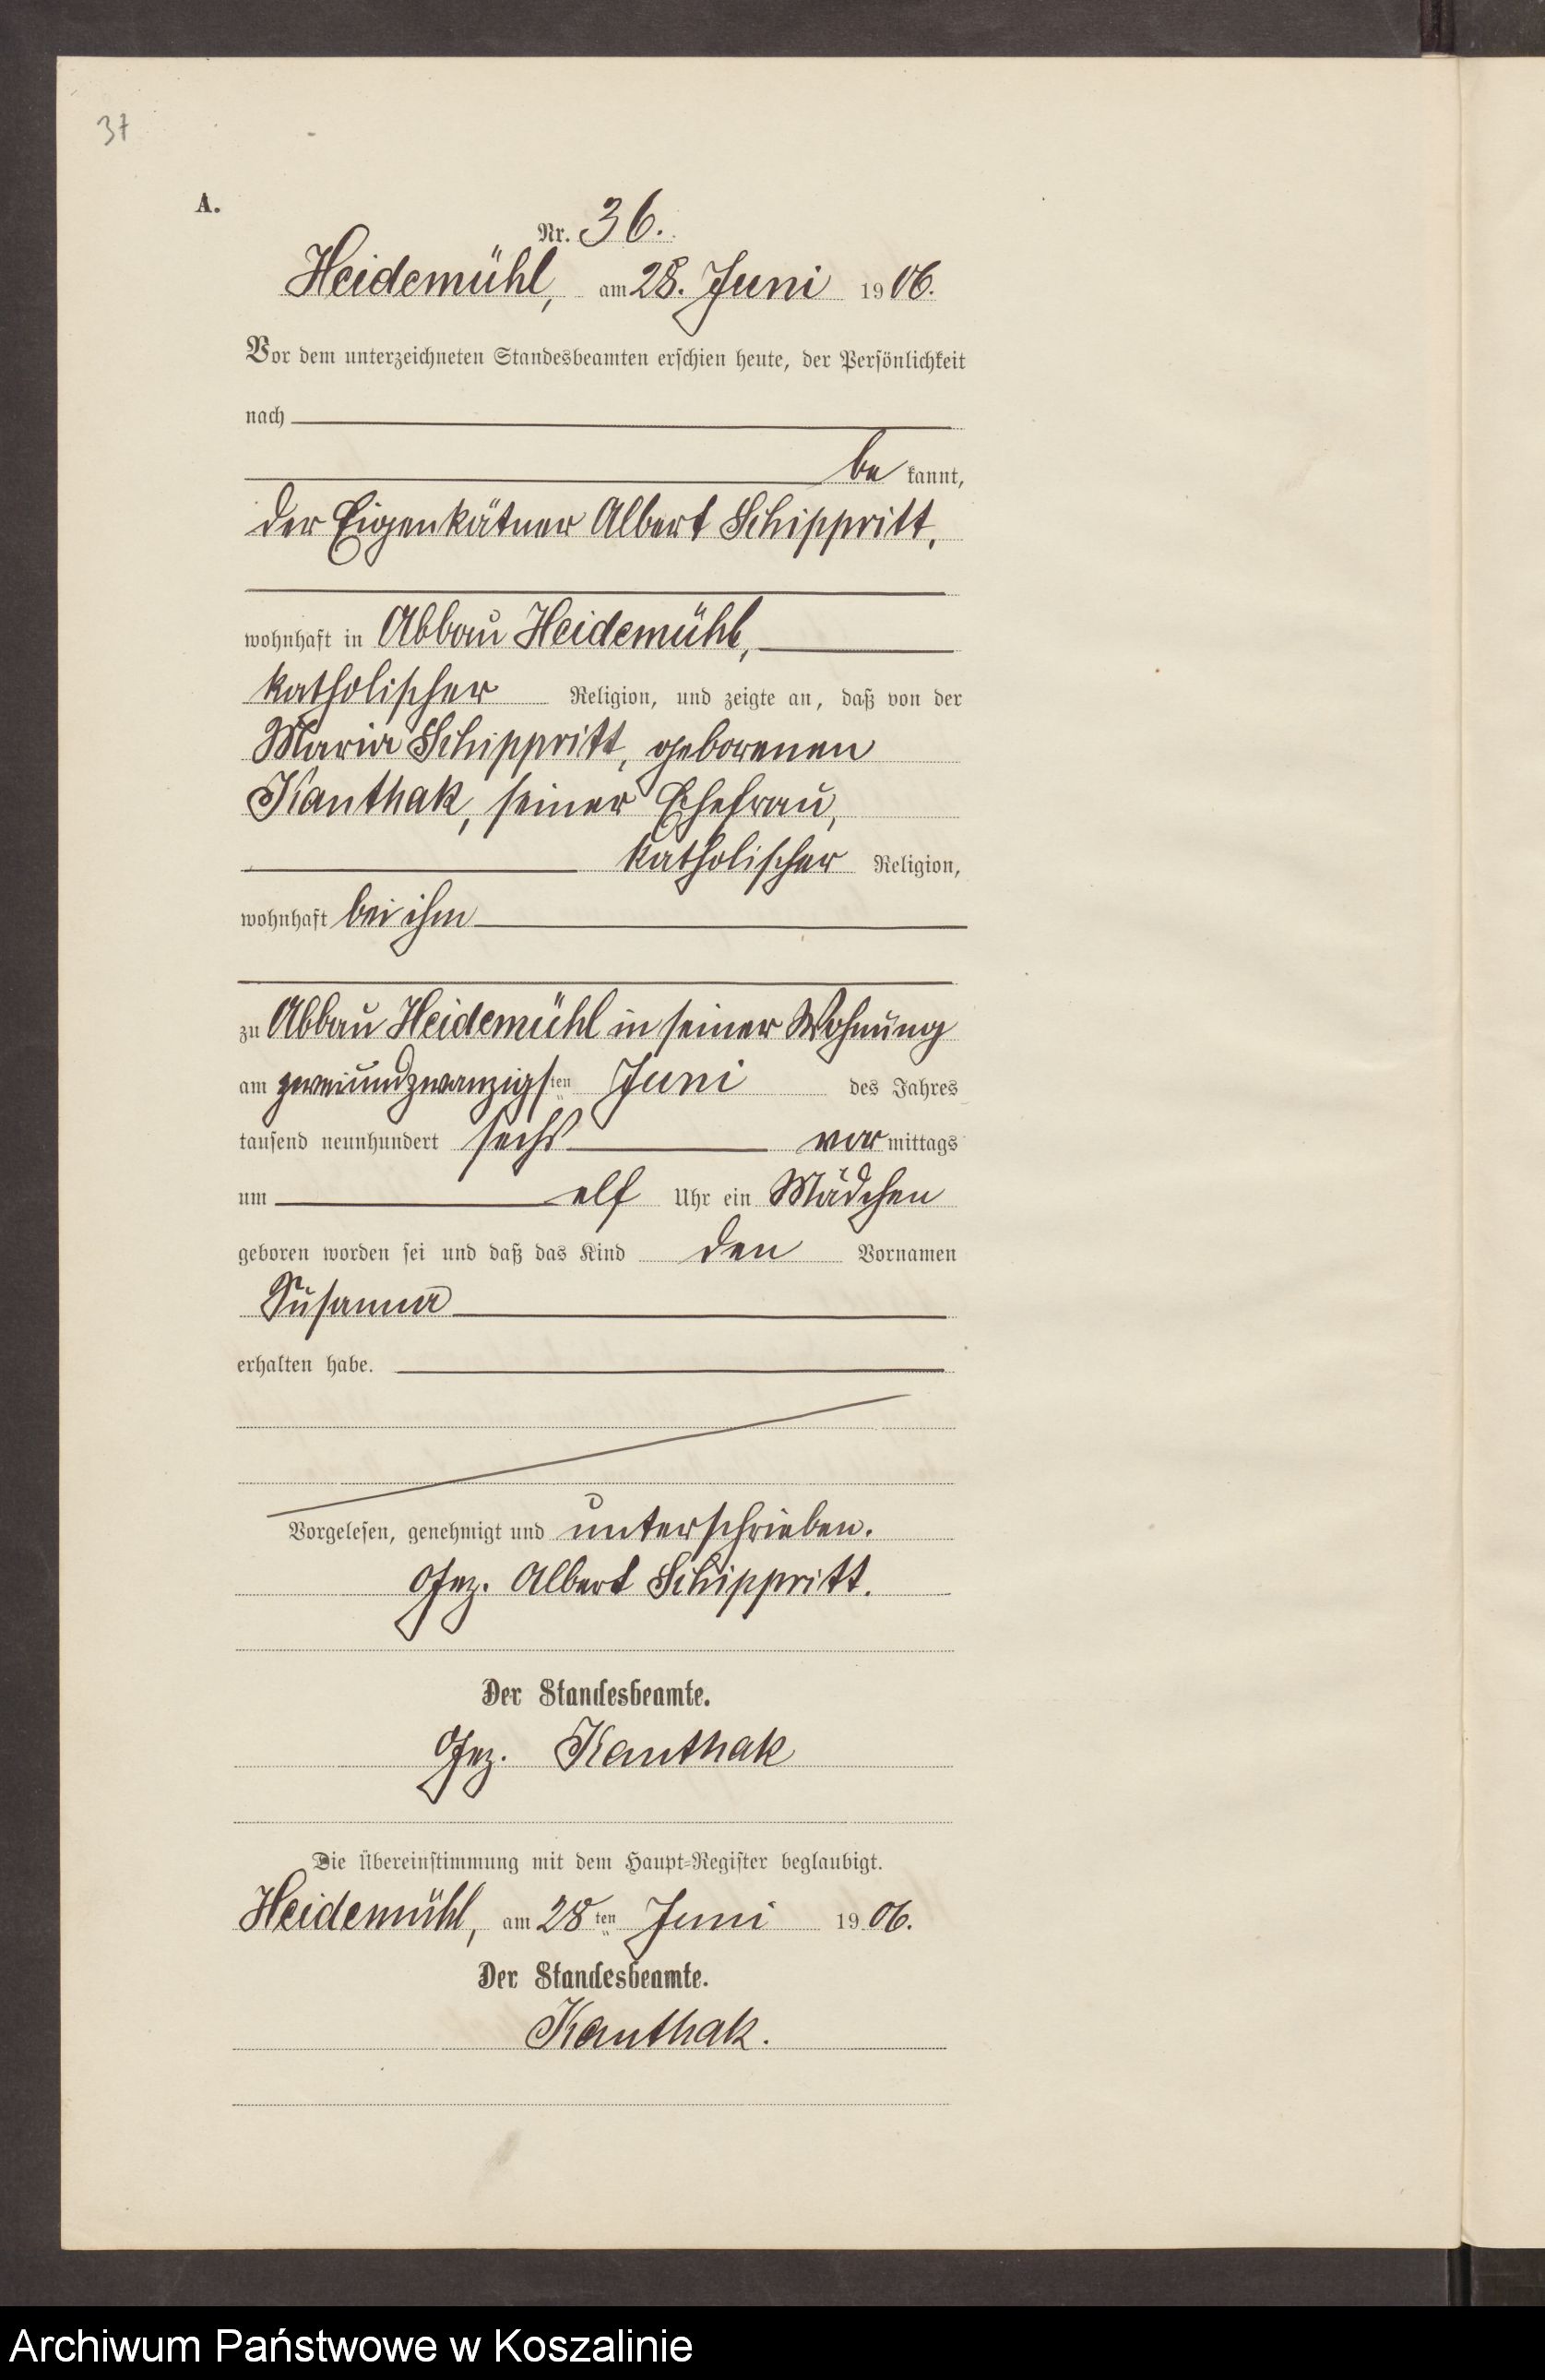 37
A.
Nr. 36.
Heidemühl, am 28. Juni 1906.
Vor dem unterzeichneten Standesbeamten erschien heute, der Persönlichkeit
nach
be kannt,
der Eigenkätner Albert Schippritt,
wohnhaft in Abbau Heidemühl,
katholischer Religion, und zeigte an, daß von der
Maria Schippritt, geborenen
Kanthak, seiner Ehefrau,
katholischer Religion,
wohnhaft bei ihm
zu Abbau Heidemühl in seiner Wohnung
am zweiundzwanzigsten Juni des Jahres
tausend neunhundert sechs vormittags
um elf Uhr ein Mädchen
geboren worden sei und daß das Kind den Vornamen
Susanna
erhalten habe.
Vorgelesen, genehmigt und unterschrieben.
Gez. Albert Schippritt.
Der Standesbeamte.
Gez. Kanthak
Die Übereinstimmung mit dem Haupt-Register beglaubigt.
Heidemühl, am 28ten Juni 1906.
Der Standesbeamte.
Kanthak.
Archiwum Państwowe w Koszalinie